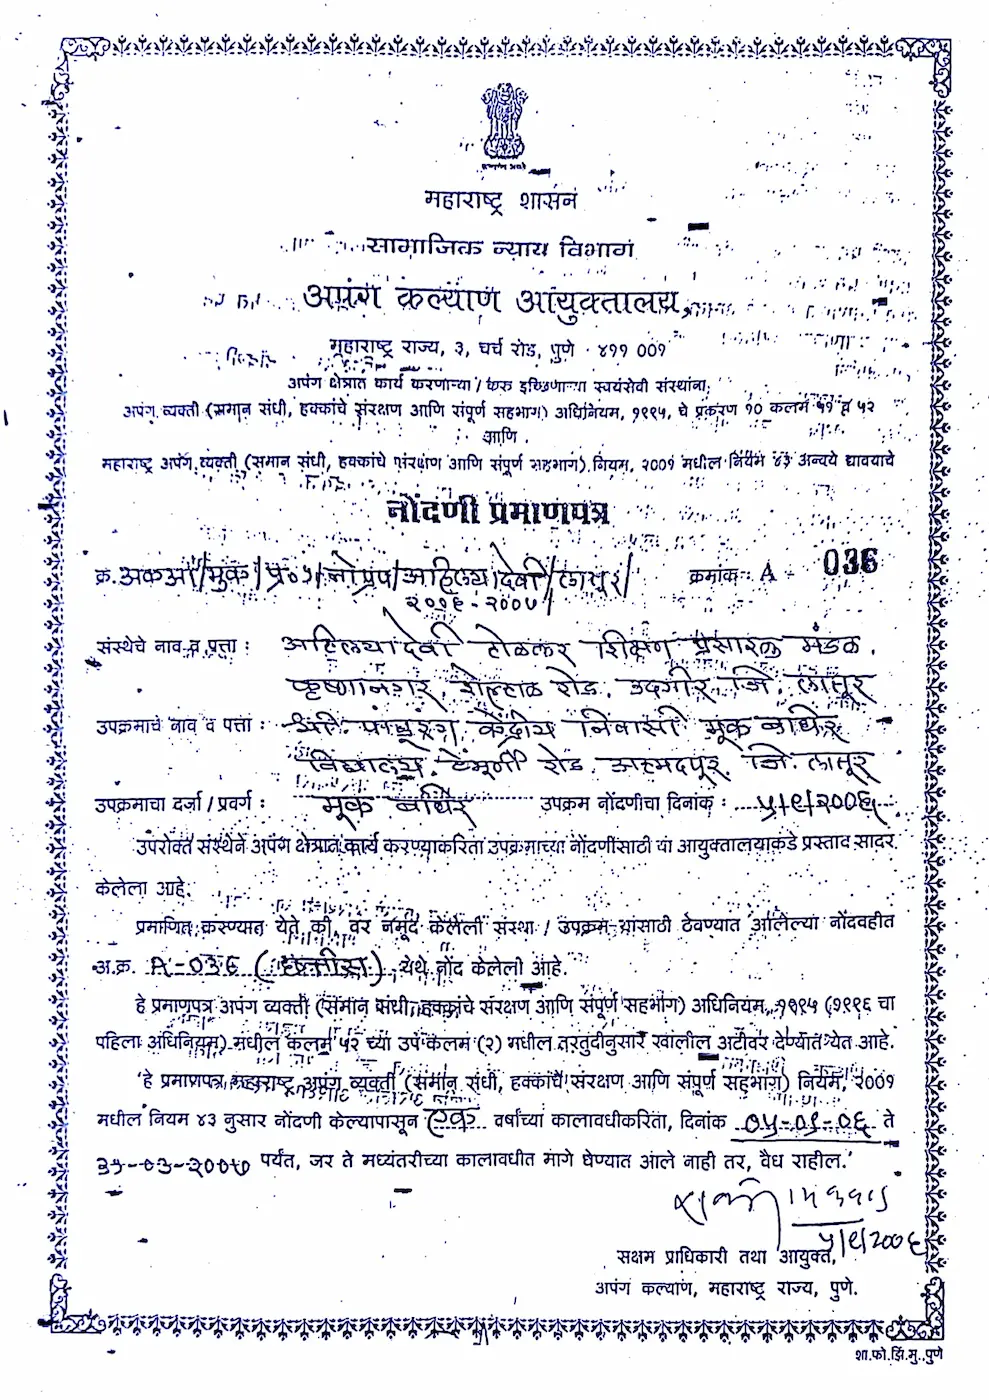 महाराष्ट्र शासन
सामाजिक न्याय विभाग
अपंग कल्याण आयुक्तालय,
महाराष्ट्र राज्य, ३, चर्च रोड, पुणे - ४११ ००१
अपंग क्षेत्रात कार्य करणाऱ्या / करु इच्छिणाऱ्या स्वयंसेवी संस्थांना.
अपंग व्यक्ती (समान संधी, हक्कांचे संरक्षण आणि संपूर्ण सहभाग) अधिनियम, १९९५, चे प्रकरण १० कलम ५१ व ५२
आणि
महाराष्ट्र अपंग व्यक्ती (समान संधी, हक्कांचे संरक्षण आणि संपूर्ण सहभाग) नियम, २००१ मधील नियम ४३ अन्वये द्यावयाचे
नोंदणी प्रमाणपत्र
क्र. अकआ/मुक/प्र०५/नोंप्रप/अहिल्यादेवी/लातूर/ क्रमांक A - 036
२००६-२००७/
संस्थेचे नाव व पत्ता : अहिल्यादेवी शिक्षण प्रसारक मंडळ.
कृष्णानगर, रोड. उदगीर जि. लातूर
उपक्रमाचे नाव व पत्ता : श्री. पांडुरंग केंद्रीय निवासी मूक बधिर
विद्यालय. टेंभूर्णी रोड. अहमदपूर. जि. लातूर
उपक्रमाचा दर्जा / प्रवर्ग : मूक बधिर उपक्रम नोंदणीचा दिनांक : ५/९/२००६
उपरोक्त संस्थेने अपंग क्षेत्रात कार्य करण्याकरिता उपक्रमाच्या नोंदणीसाठी या आयुक्तालयाकडे प्रस्ताव सादर
केलेला आहे.
प्रमाणित करण्यात येते की, वर नमूद केलेली संस्था / उपक्रम यांसाठी ठेवण्यात आलेल्या नोंदवहीत
अ.क्र. A-036 (छत्तीस) येथे नोंद केलेली आहे.
हे प्रमाणपत्र अपंग व्यक्ती (समान संधी, हक्कांचे संरक्षण आणि संपूर्ण सहभाग) अधिनियम, १९९५ (१९९६ चा
पहिला अधिनियम) मधील कलम ५२ च्या उप कलम (२) मधील तरतुदीनुसार खालील अटीवर देण्यात येत आहे.
हे प्रमाणपत्र, महाराष्ट्र अपंग व्यक्ती (समान संधी, हक्कांचे संरक्षण आणि संपूर्ण सहभाग) नियम, २००१
मधील नियम ४३ नुसार नोंदणी केल्यापासून एक वर्षाच्या कालावधीकरिता, दिनांक ०५-०९-०६ ते
३१-०३-२००७ पर्यंत, जर ते मध्यंतरीच्या कालावधीत मागे घेण्यात आले नाही तर, वैध राहील.
५/९/२००६
सक्षम प्राधिकारी तथा आयुक्त,
अपंग कल्याण, महाराष्ट्र राज्य, पुणे.
शा.फो.झिं.मु.,पुणे